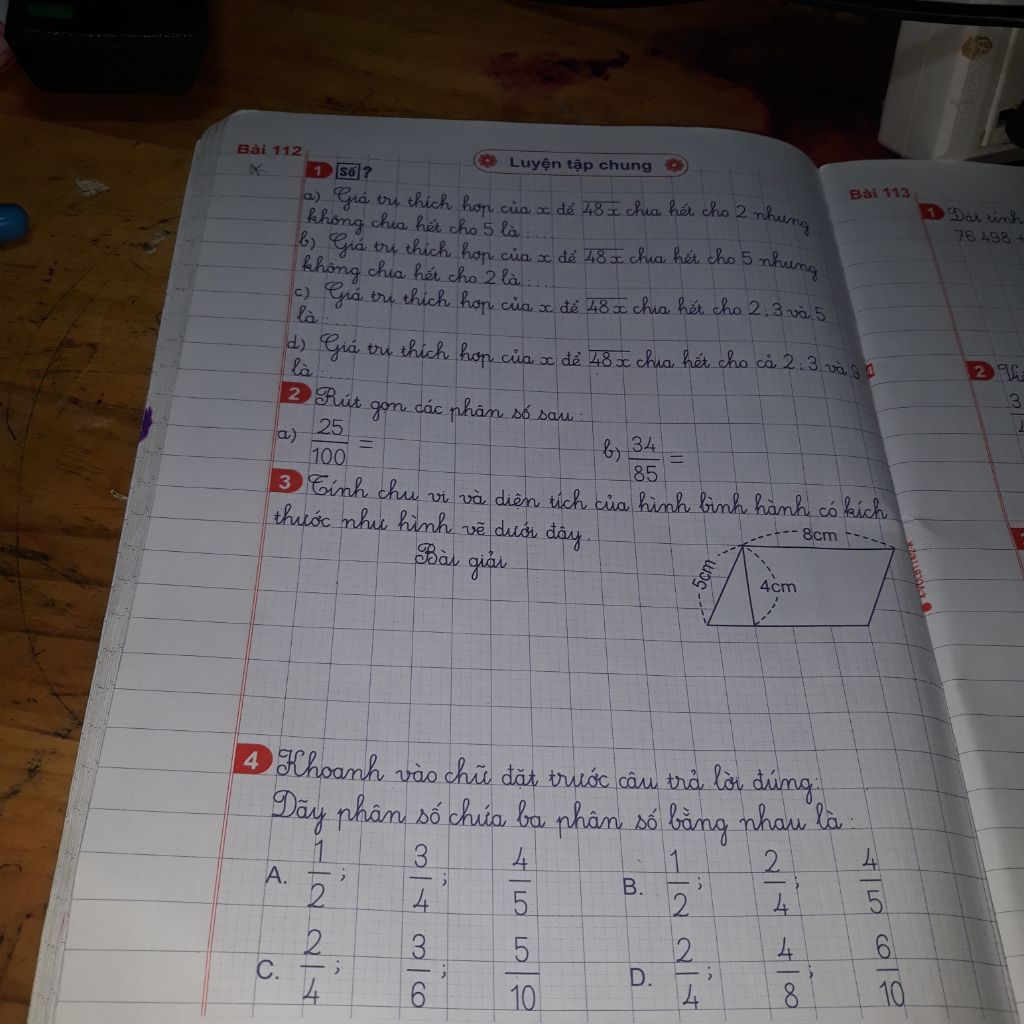 Bài 112
Luyện tập chung
1 Số ?
a) Giá trị thích hợp của x để 48x chia hết cho 2 nhưng
không chia hết cho 5 là :....
b) Giá trị thích hợp của x để 48x chia hết cho 5 nhưng
không chia hết cho 2 là :....
c) Giá trị thích hợp của x để 48x chia hết cho 2; 3 và 5
là :....
d) Giá trị thích hợp của x để 48x chia hết cho cả 2; 3 và 9
là :....
2 Rút gọn các phân số sau :
a) 25/100 =
b) 34/85 =
3 Tính chu vi và diện tích của hình bình hành có kích
thước như hình vẽ dưới đây.
Bài giải
8cm
5cm
4cm
4 Khoanh vào chữ đặt trước câu trả lời đúng:
Dãy phân số chứa ba phân số bằng nhau là :
A. 1/2 ; 3/4 ; 4/5
B. 1/2 ; 2/4 ; 4/5
C. 2/4 ; 3/6 ; 5/10
D. 2/4 ; 4/8 ; 6/10
Bài 113
1 Đặt tính
76 498 +
2
3